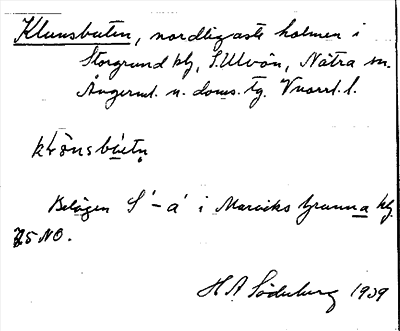 Klunsbuten, nordligaste holmen i
Storgrund kbg, S. Ulvön, Nätra sn.
Ångerml. n. doms. tg. Vnorrl. l.
Belägen S´-a´ i Marviksgrunna kbg
25 NO.
H A Söderberg 1939